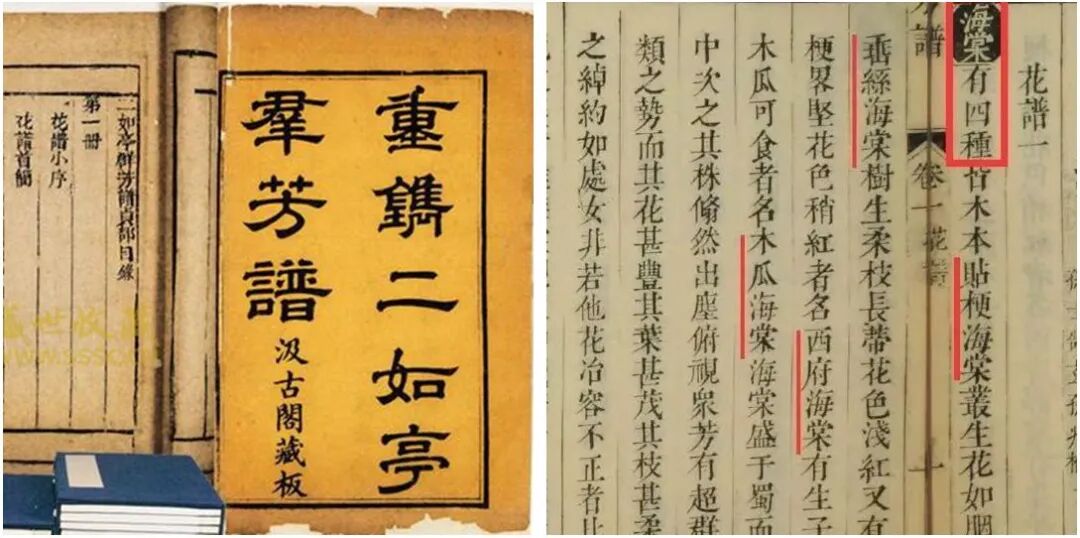 重鐫二如亭
羣芳譜
汲古閣藏板
二如亭群芳譜貞部目錄
第一冊
花譜小序
花譜首簡
花譜一
海棠有四種皆木本貼梗海棠叢生花如胭
芳譜 卷一 花譜 一
垂絲海棠樹生柔枝長蒂花色淺紅又有
梗畧堅花色稍紅者名西府海棠有生子
木瓜可食者名木瓜海棠海棠盛于蜀而
中次之其株翛然出塵俯視衆芳有超群
類之勢而其花甚豐其葉甚茂其枝甚柔
之綽約如處女非若他花冶容不正者比